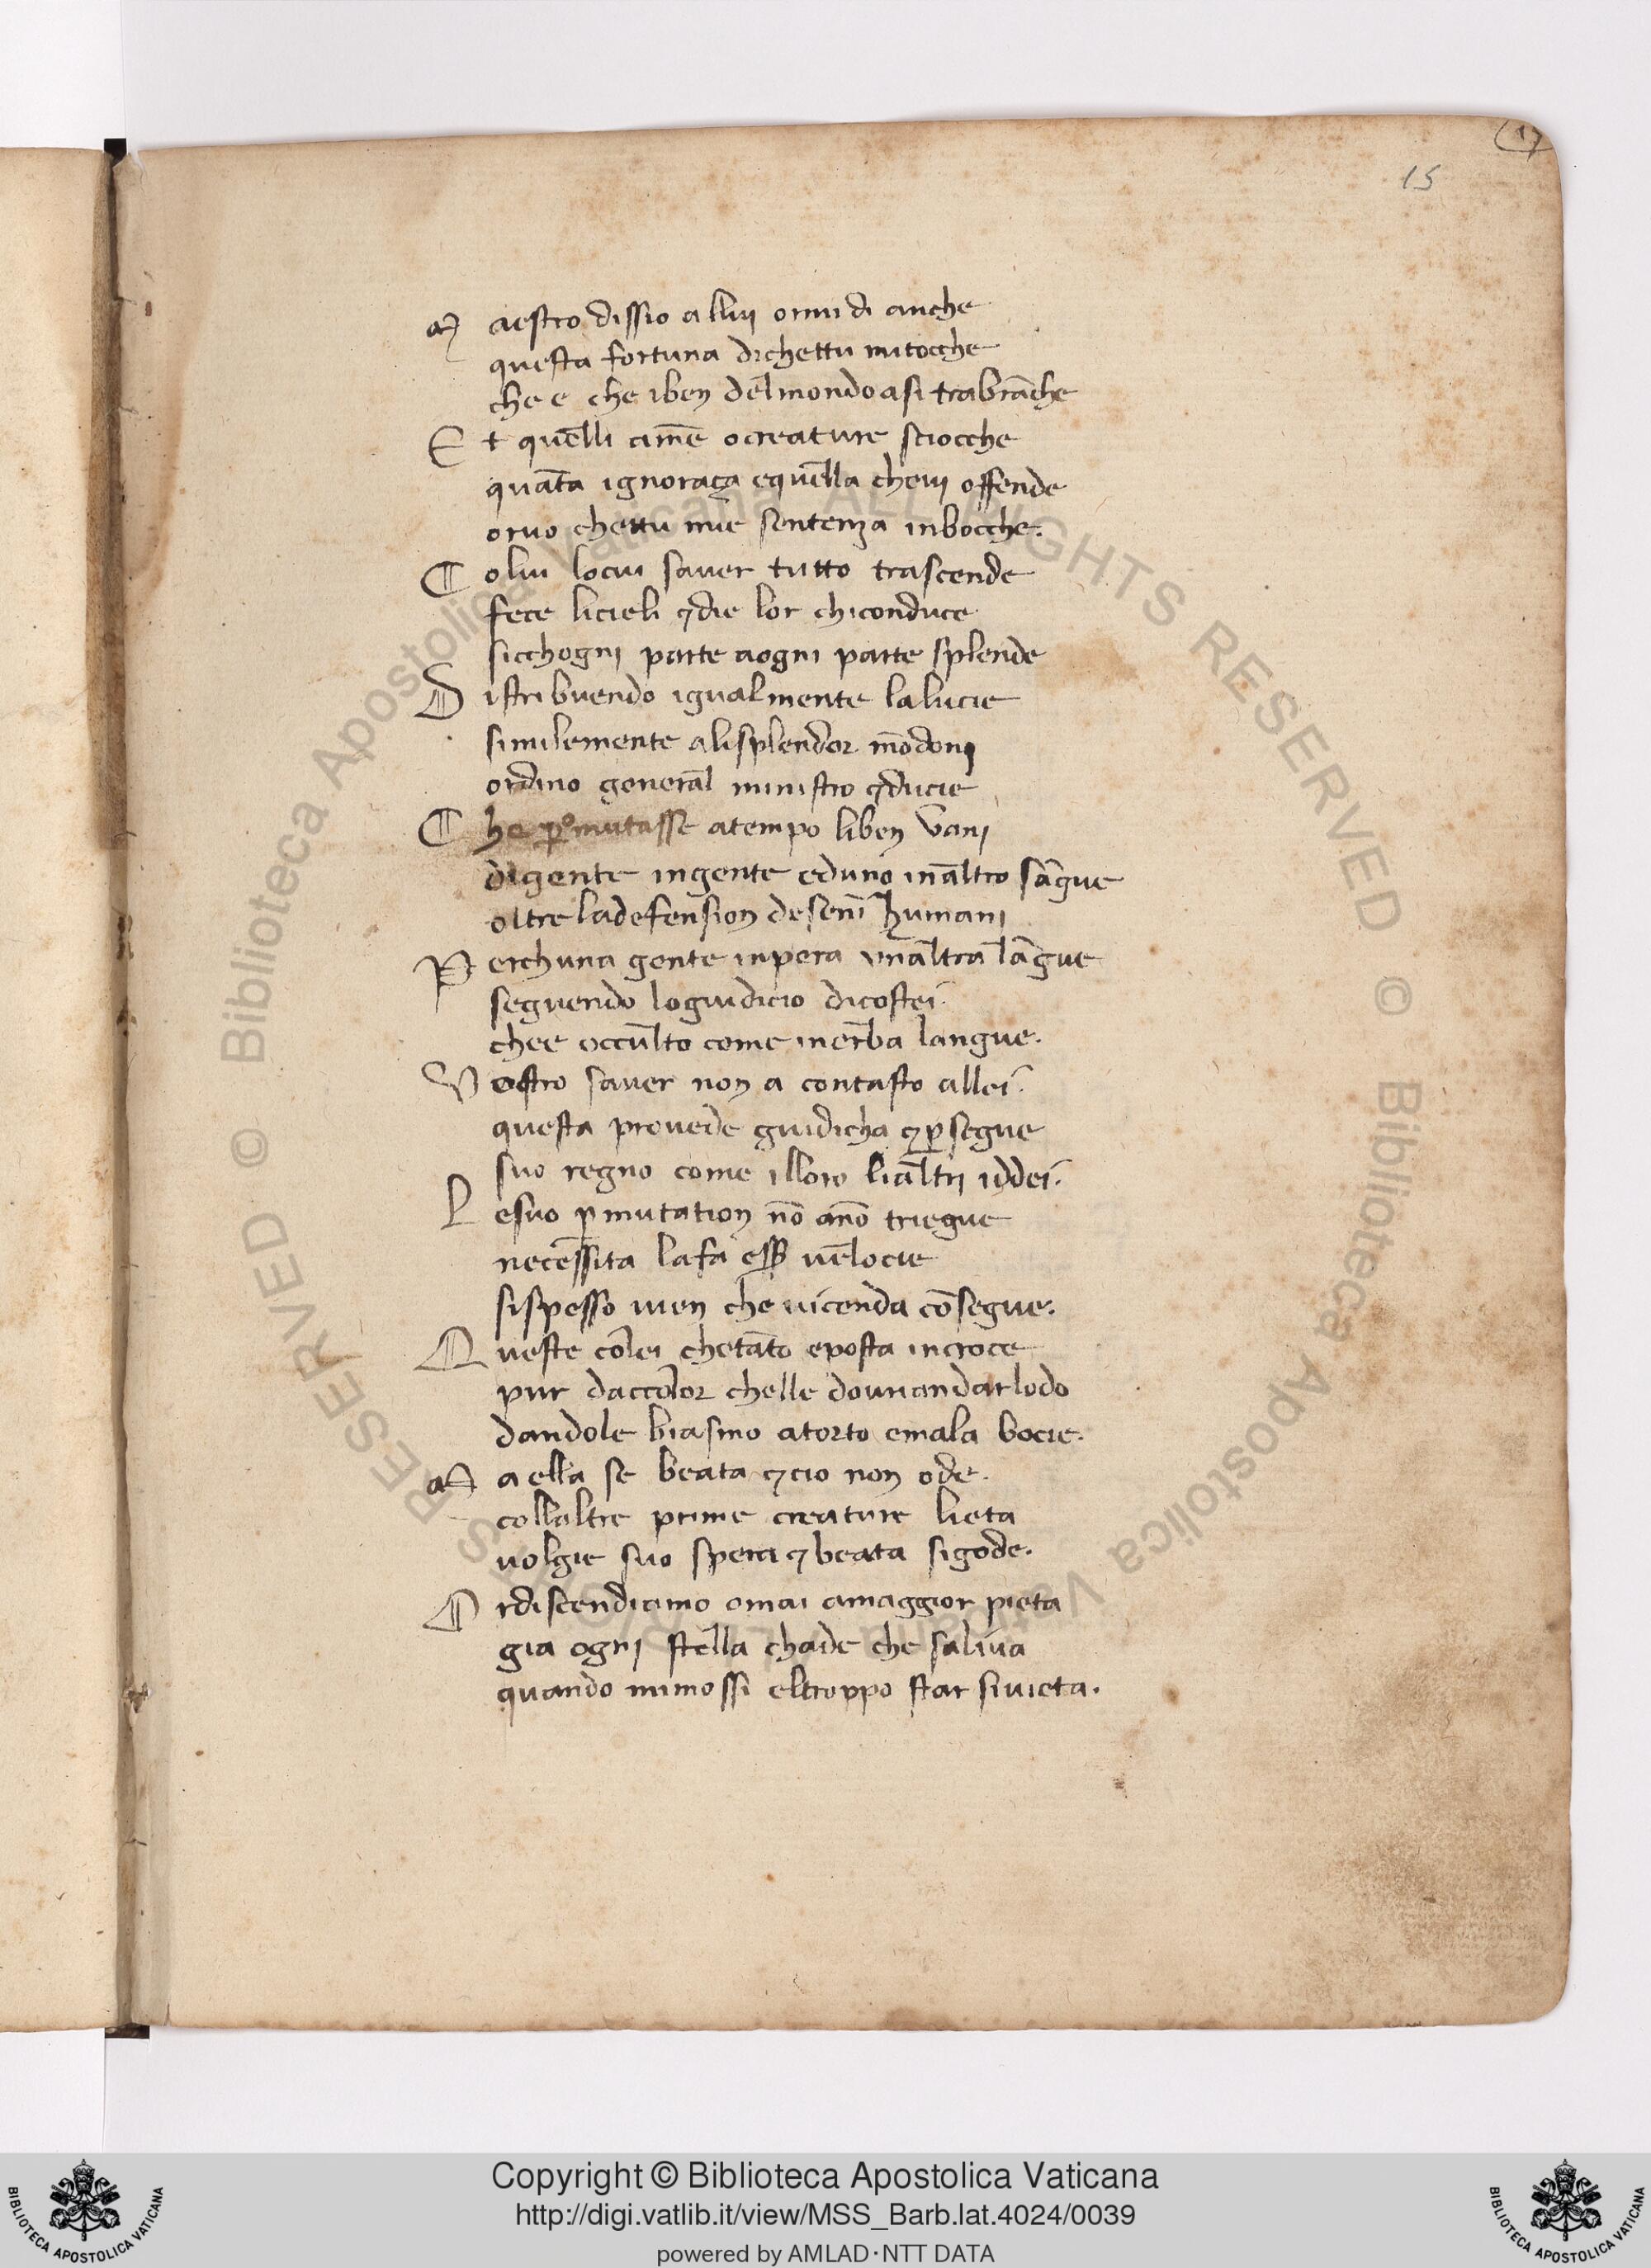 17
15
M aestro dissio allui ormidi anche
questa fortuna dichettu mitocche
che e che iben del mondo asi trabrāche
E t quelli ame ocreature sciocche
quāta ignorāça equella cheui offende
oruo chettu mie sentenza inbocche.
C olui locui sauer tutto trascende
fece licieli ⁊die lor chiconduce
sicchogni parte aogni parte splende
D istribuendo igualmente lalucie
similemente alisplendor mōdani
ordino general ministro ⁊ducie
C he permutasse atempo liben vani
digente ingente eduno inaltro sāgue
oltre ladefension desenni humani
P erchuna gente inpera unaltra lāgue
seguendo logiudicio dicostei.
chee occulto come inerba langue.
V ostro sauer non a contasto allei.
questa prouede giudicha ⁊ ꝑsegue
suo regno come illoro lialtri iddei.
L esuo ꝑmutation nō ānō triegue
necessita lafa esser uelocie
sispesso uien che uicenda cōsegue.
Q ueste colei chetāto eposta incroce
pur daccolor chelle douriandarlodo
dandole biasmo atorto emala bocie.
M a ella se beata ⁊cio non ode.
collaltre prime creature lieta
uolgie suo spera ⁊ beata sigode.
O rdiscendiamo omai amaggior pieta
gia ogni stella chade che saliua
quando mimossi eltroppo star siuieta.
© Biblioteca Apostolica Vaticana ALL RIGHTS RESERVED © Biblioteca Apostolica Vaticana ALL RIGHTS RESERVED
Copyright © Biblioteca Apostolica Vaticana
http://digi.vatlib.it/view/MSS_Barb.lat.4024/0039
powered by AMLAD·NTT DATA
BIBLIOTECA APOSTOLICA VATICANA
BIBLIOTECA APOSTOLICA VATICANA